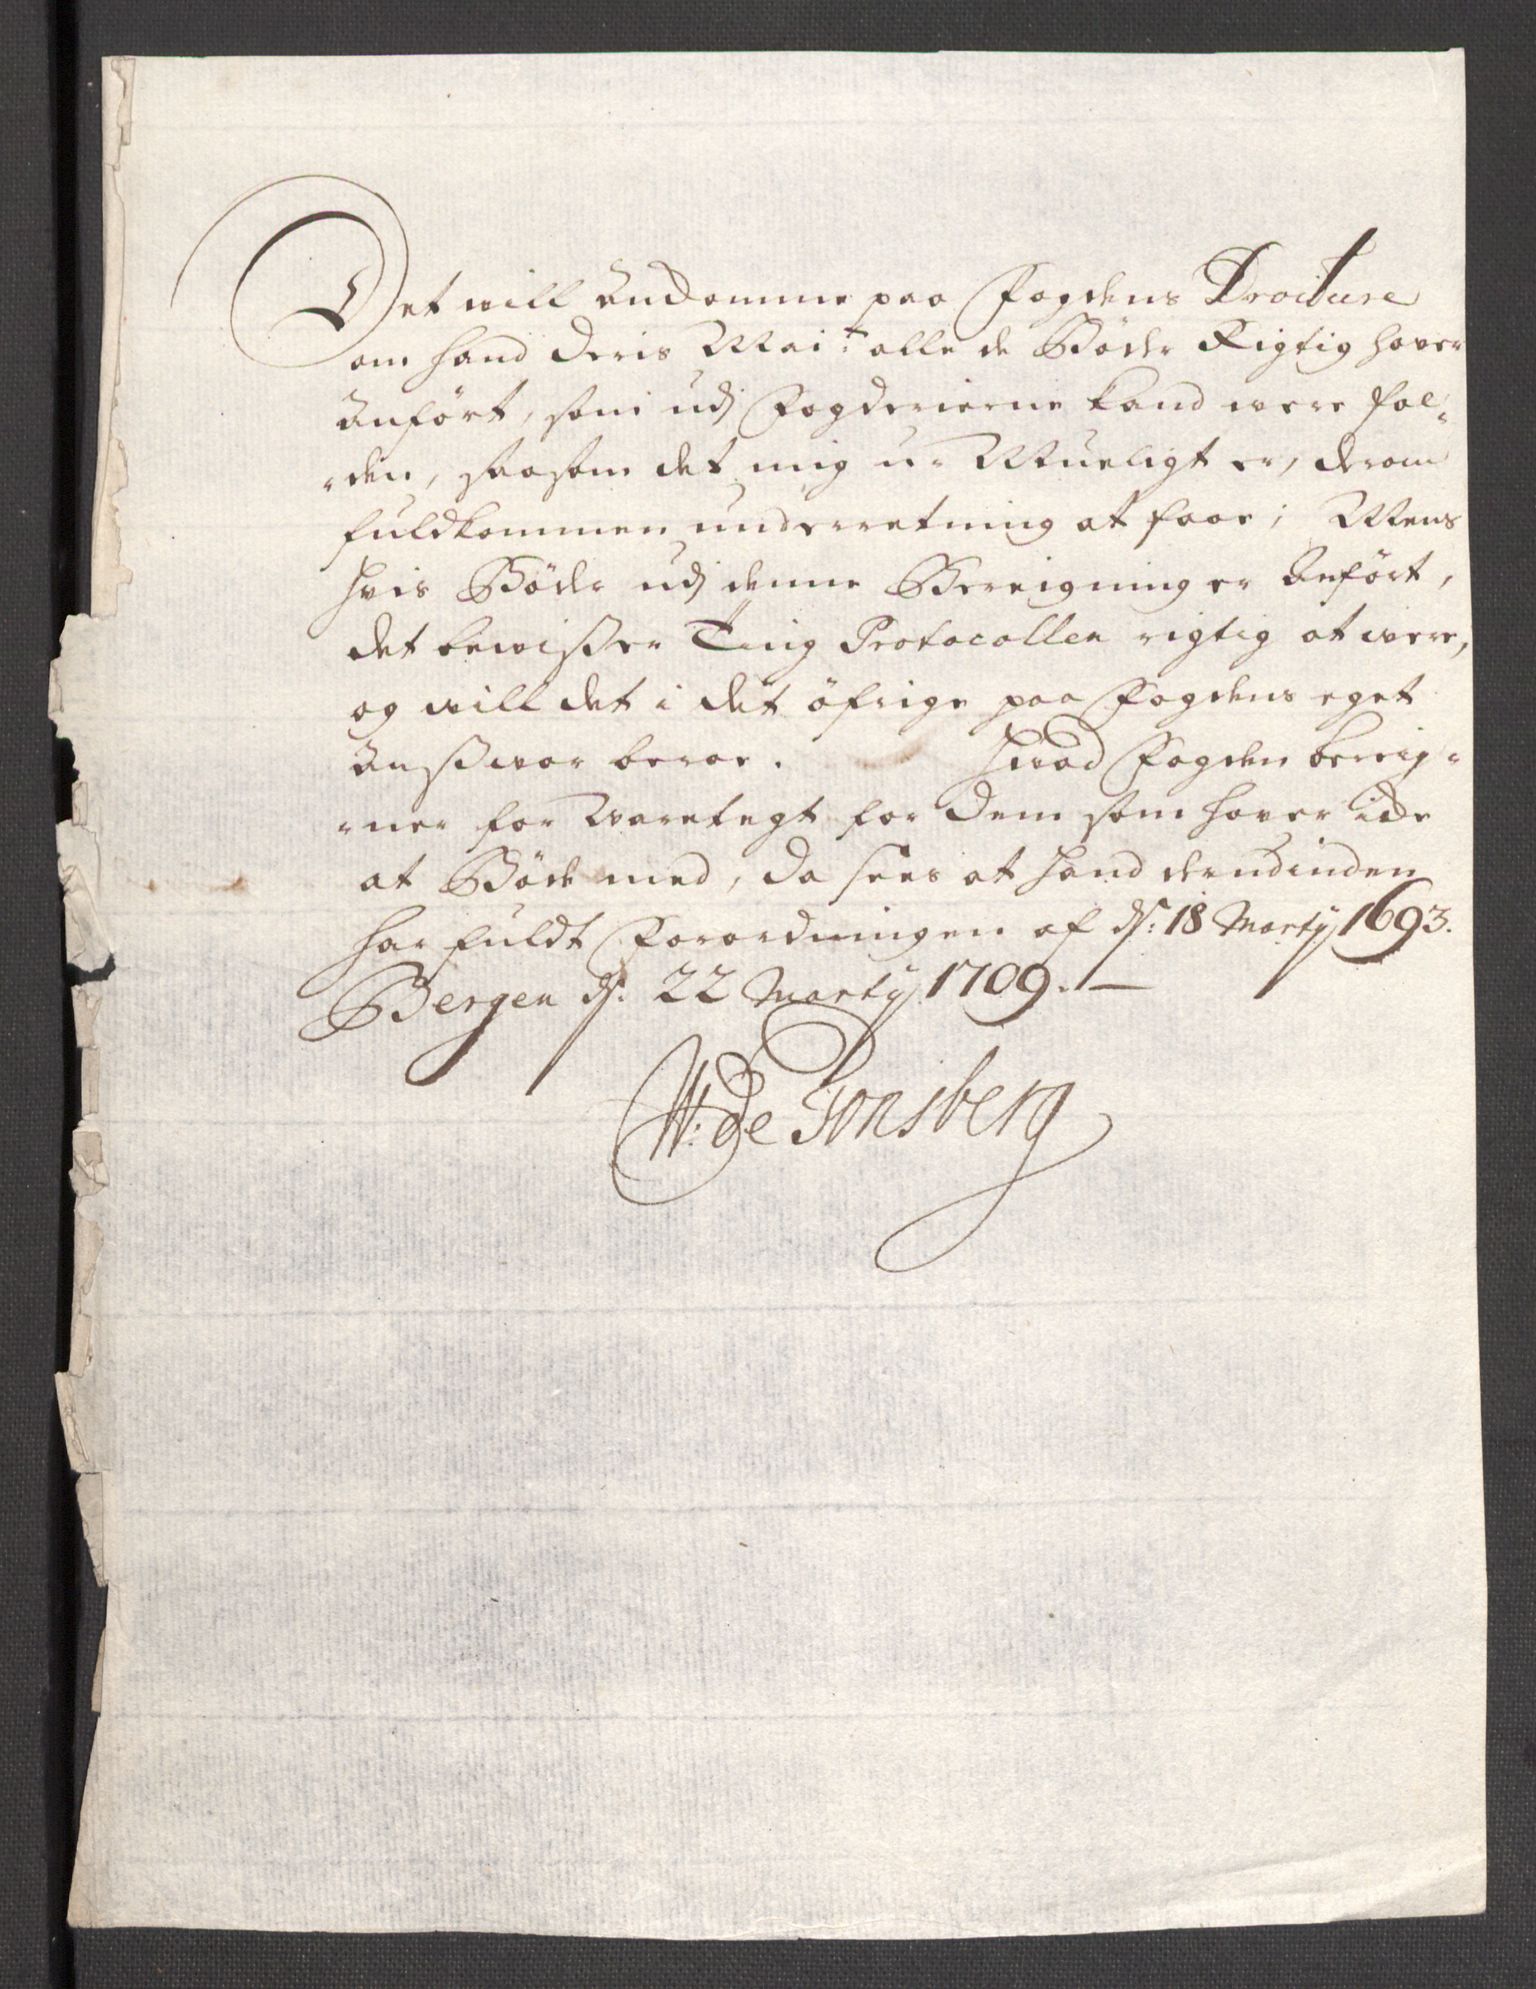 Det will Ankomme paa Fogdens Droiture
om hand Deris Mai:t alle de Bøder Rigtig haver
Anført, som udj Fogderierne kand were fal=
=den, saasom det mig u-Mueligt er, derom
fuldkommen underretning at faae; Mens
hvis Bøder udj denne Bereigning er Anført,
det bewisser Ting Protocollen rigtig at were,
og will det i det øfrige paa Fogdens eget
Answar beroe. Hvad Fogden bereig=
=ner for Waretegt for Dem som haver ide
at Bøde med, da sees at hand derudinden
har fuldt Forordningen af d: 18 Marty 1693.
Bergen d: 22 Marty 1709. —
W: de Tonsberg